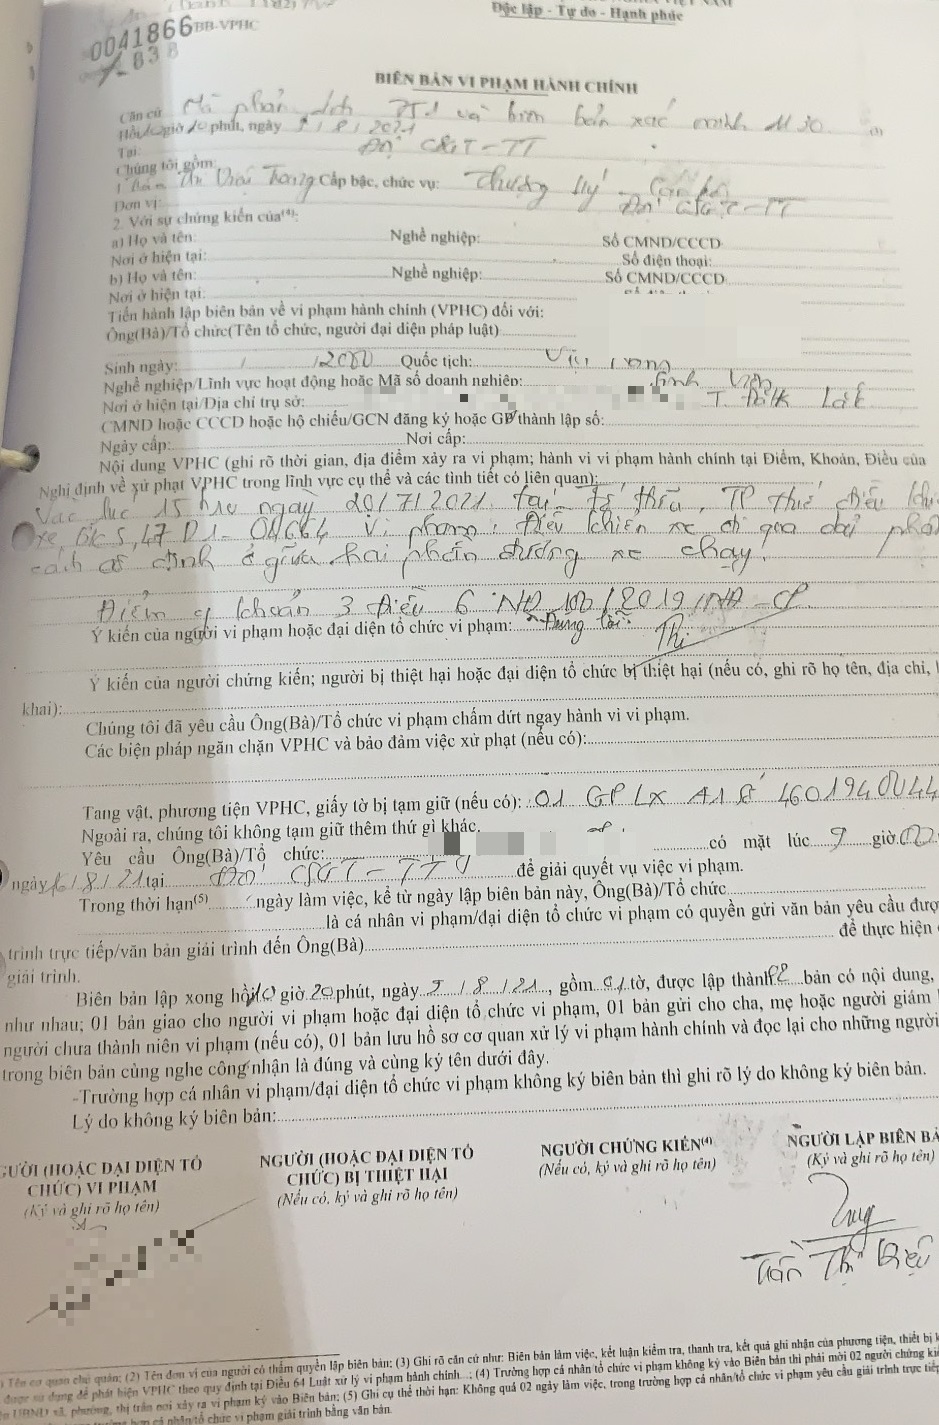 Độc lập - Tự do - Hạnh phúc
0041866 BB-VPHC
BIÊN BẢN VI PHẠM HÀNH CHÍNH
Căn cứ Mã phản ánh 751 và biên bản xác minh 1130
Hồi 10 giờ 10 phút, ngày 5/8/2021
Tại: Đội CSGT-TT
Chúng tôi gồm:
1. Cấp bậc, chức vụ: Thượng úy Cán bộ
Đơn vị: Đội CSGT-TT
2. Với sự chứng kiến của(4):
a) Họ và tên: Nghề nghiệp: Số CMND/CCCD
Nơi ở hiện tại: Số điện thoại:
b) Họ và tên: Nghề nghiệp: Số CMND/CCCD
Nơi ở hiện tại:
Tiến hành lập biên bản về vi phạm hành chính (VPHC) đối với:
Ông(Bà)/Tổ chức(Tên tổ chức, người đại diện pháp luật)
Sinh ngày: / /2000 Quốc tịch: Việt Nam
Nghề nghiệp/Lĩnh vực hoạt động hoặc Mã số doanh nghiệp: Sinh viên
Nơi ở hiện tại/Địa chỉ trụ sở: T. Đắk Lắk
CMND hoặc CCCD hoặc hộ chiếu/GCN đăng ký hoặc GP thành lập số:
Ngày cấp: Nơi cấp:
Nội dung VPHC (ghi rõ thời gian, địa điểm xảy ra vi phạm; hành vi vi phạm hành chính tại Điểm, Khoản, Điều của
Nghị định về xử phạt VPHC trong lĩnh vực cụ thể và các tình tiết có liên quan):
Vào lúc 15h10 ngày 20/7/2021, tại Tố Hữu, TP Huế điều khiển
xe, BKS, 47D1-04664 vi phạm: Điều khiển xe đi qua dải phân
cách cố định ở giữa hai phần đường xe chạy.
Điểm khoản 3 Điều 6 NĐ 100/2019/NĐ-CP.
Ý kiến của người vi phạm hoặc đại diện tổ chức vi phạm:
Ý kiến của người chứng kiến; người bị thiệt hại hoặc đại diện tổ chức bị thiệt hại (nếu có, ghi rõ họ tên, địa chỉ,
khai):
Chúng tôi đã yêu cầu Ông(Bà)/Tổ chức vi phạm chấm dứt ngay hành vi vi phạm.
Các biện pháp ngăn chặn VPHC và bảo đảm việc xử phạt (nếu có):
Tang vật, phương tiện VPHC, giấy tờ bị tạm giữ (nếu có): 01 GPLX A1 số 4601940044
Ngoài ra, chúng tôi không tạm giữ thêm thứ gì khác.
Yêu cầu Ông(Bà)/Tổ chức: có mặt lúc 9 giờ 00
ngày 16/8/21 tại Đội CSGT-TT để giải quyết vụ việc vi phạm.
Trong thời hạn(5) ngày làm việc, kể từ ngày lập biên bản này, Ông(Bà)/Tổ chức
là cá nhân vi phạm/đại diện tổ chức vi phạm có quyền gửi văn bản yêu cầu
trình trực tiếp/văn bản giải trình đến Ông(Bà) để thực hiện
giải trình.
Biên bản lập xong hồi 10 giờ 20 phút, ngày 5/8/21, gồm 01 tờ, được lập thành 02 bản có nội dung,
như nhau; 01 bản giao cho người vi phạm hoặc đại diện tổ chức vi phạm, 01 bản gửi cho cha, mẹ hoặc người giám
người chưa thành niên vi phạm (nếu có), 01 bản lưu hồ sơ cơ quan xử lý vi phạm hành chính và đọc lại cho những người
trong biên bản cùng nghe công nhận là đúng và cùng ký tên dưới đây.
-Trường hợp cá nhân vi phạm/đại diện tổ chức vi phạm không ký biên bản thì ghi rõ lý do không ký biên bản.
Lý do không ký biên bản:
NGƯỜI (HOẶC DẠI DIỆN TỔ CHỨC) VI PHẠM
(Ký và ghi rõ họ tên)
NGƯỜI (HOẶC DẠI DIỆN TỔ CHỨC) BỊ THIỆT HẠI
(Nếu có, ký và ghi rõ họ tên)
NGƯỜI CHỨNG KIẾN(4)
(Nếu có, ký và ghi rõ họ tên)
NGƯỜI LẬP BIÊN BẢ
(Ký và ghi rõ họ tên)
Trần Thị Diệu
Tên cơ quan chủ quản; (2) Tên đơn vị của người có thẩm quyền lập biên bản; (3) Ghi rõ căn cứ như: Biên bản làm việc, kết luận kiểm tra, thanh tra, kết quả ghi nhận của phương tiện, thiết bị
được sử dụng để phát hiện VPHC theo quy định tại Điều 64 Luật xử lý vi phạm hành chính...; (4) Trường hợp cá nhân tổ chức vi phạm không ký vào Biên bản thì phải mời 02 người chứng
UBND xã, phường, thị trấn nơi xảy ra vi phạm ký vào Biên bản; (5) Ghi cụ thể thời hạn: Không quá 02 ngày làm việc, trong trường hợp cá nhân/tổ chức vi phạm yêu cầu giải trình trực
cá nhân/tổ chức vi phạm giải trình bằng văn bản.